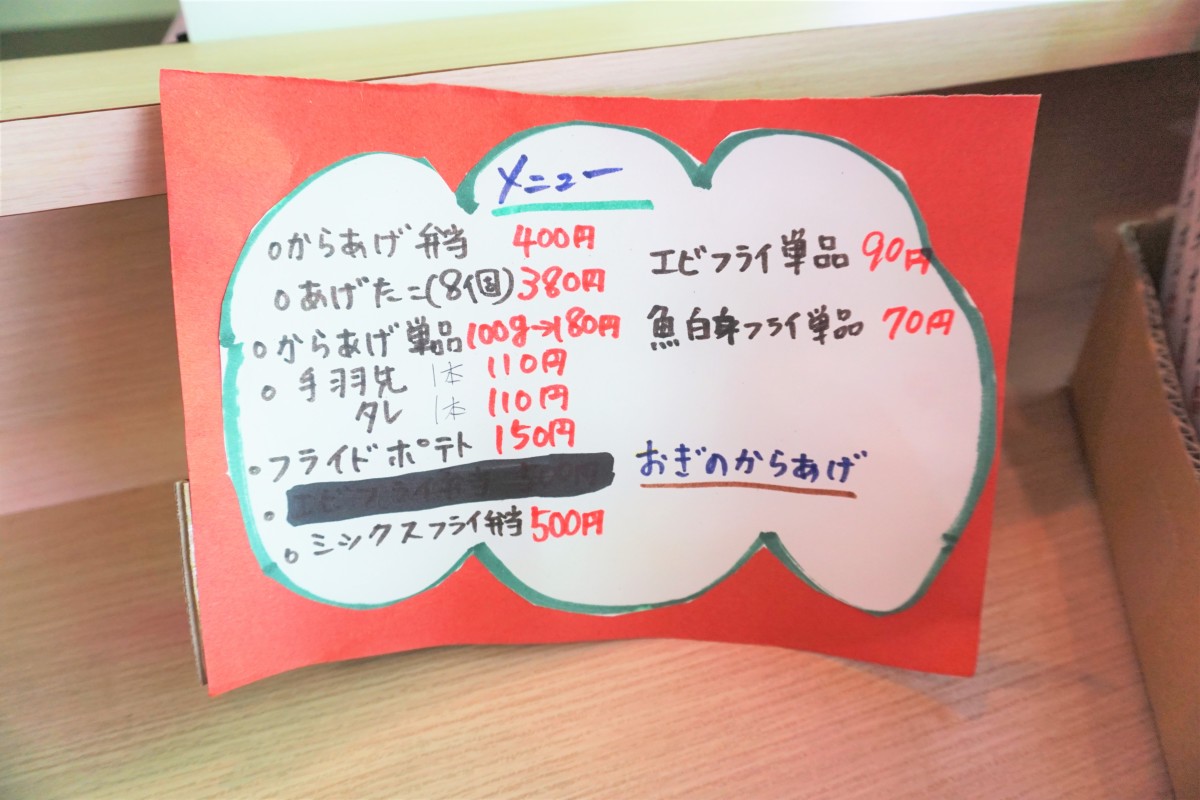 メニュー
○からあげ弁当 400円
○あげたこ(8個) 380円
○からあげ単品 100g→180円
○手羽先 1本 110円
タレ 1本 110円
○フライドポテト 150円
○ミックスフライ弁当 500円
エビフライ単品 90円
魚白身フライ単品 70円
おぎのからあげ